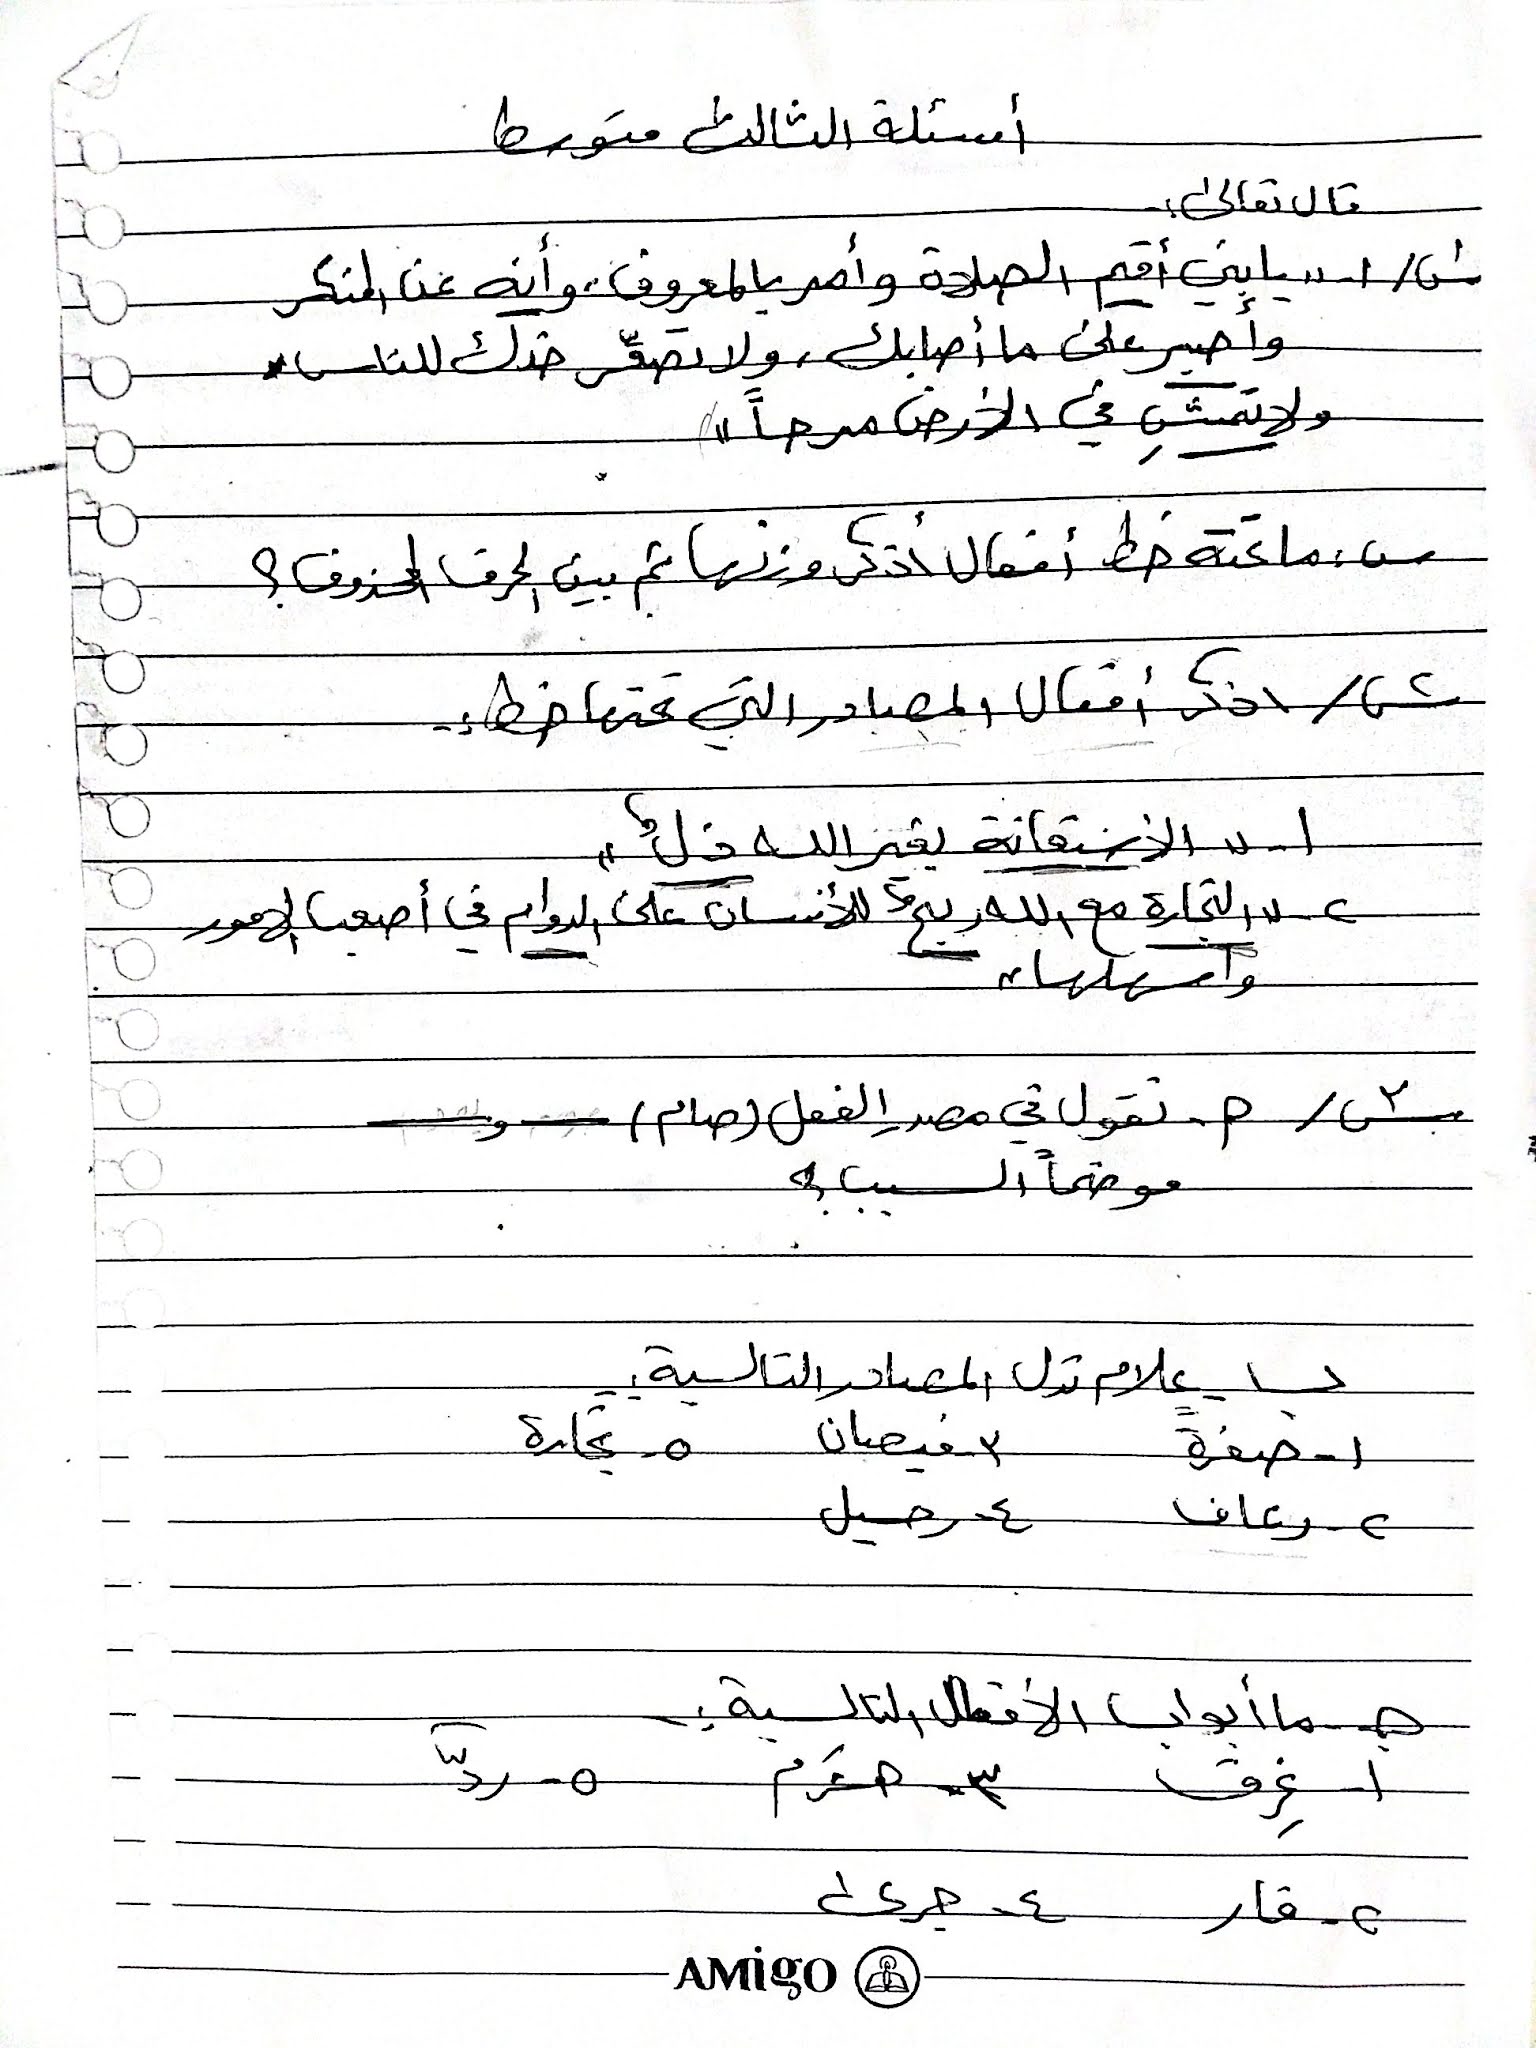 أسئلة الثالث متوسط
قال تعالى:-
س١/ ١- "يابني أقم الصلاة وأمر بالمعروف، وأنه عن المنكر
وأصبر على ما أصابك، ولا تصعّر خدك للناس
ولا تمشِ في الأرض مرحاً"
س: ماتحته خط أفعال أذكر وزنها ثم بين الحرف المحذوف؟
س٢/ اذكر أفعال المصادر التي تحتها خط:-
١- "الأستعانة بغير الله ذلٌ"
٢- "التجارة مع الله ربحٌ للأنسان على الدوام في أصعب الأمور
وأسهلها"
س٣/ م- تقول في مصدر الفعل (صام) ــــ و ــــ
موضحاً السبب؟
ب- علام تدل المصادر التالية:-
١- صفرةً ٣- فيضان ٥- تجارة
٢- رعاف ٤- رحيل
جـ- ما أبواب الأفعال التالية:-
١- غرِق ٣- ٥- ردّ
٢- ٤- جرى
AMIGO